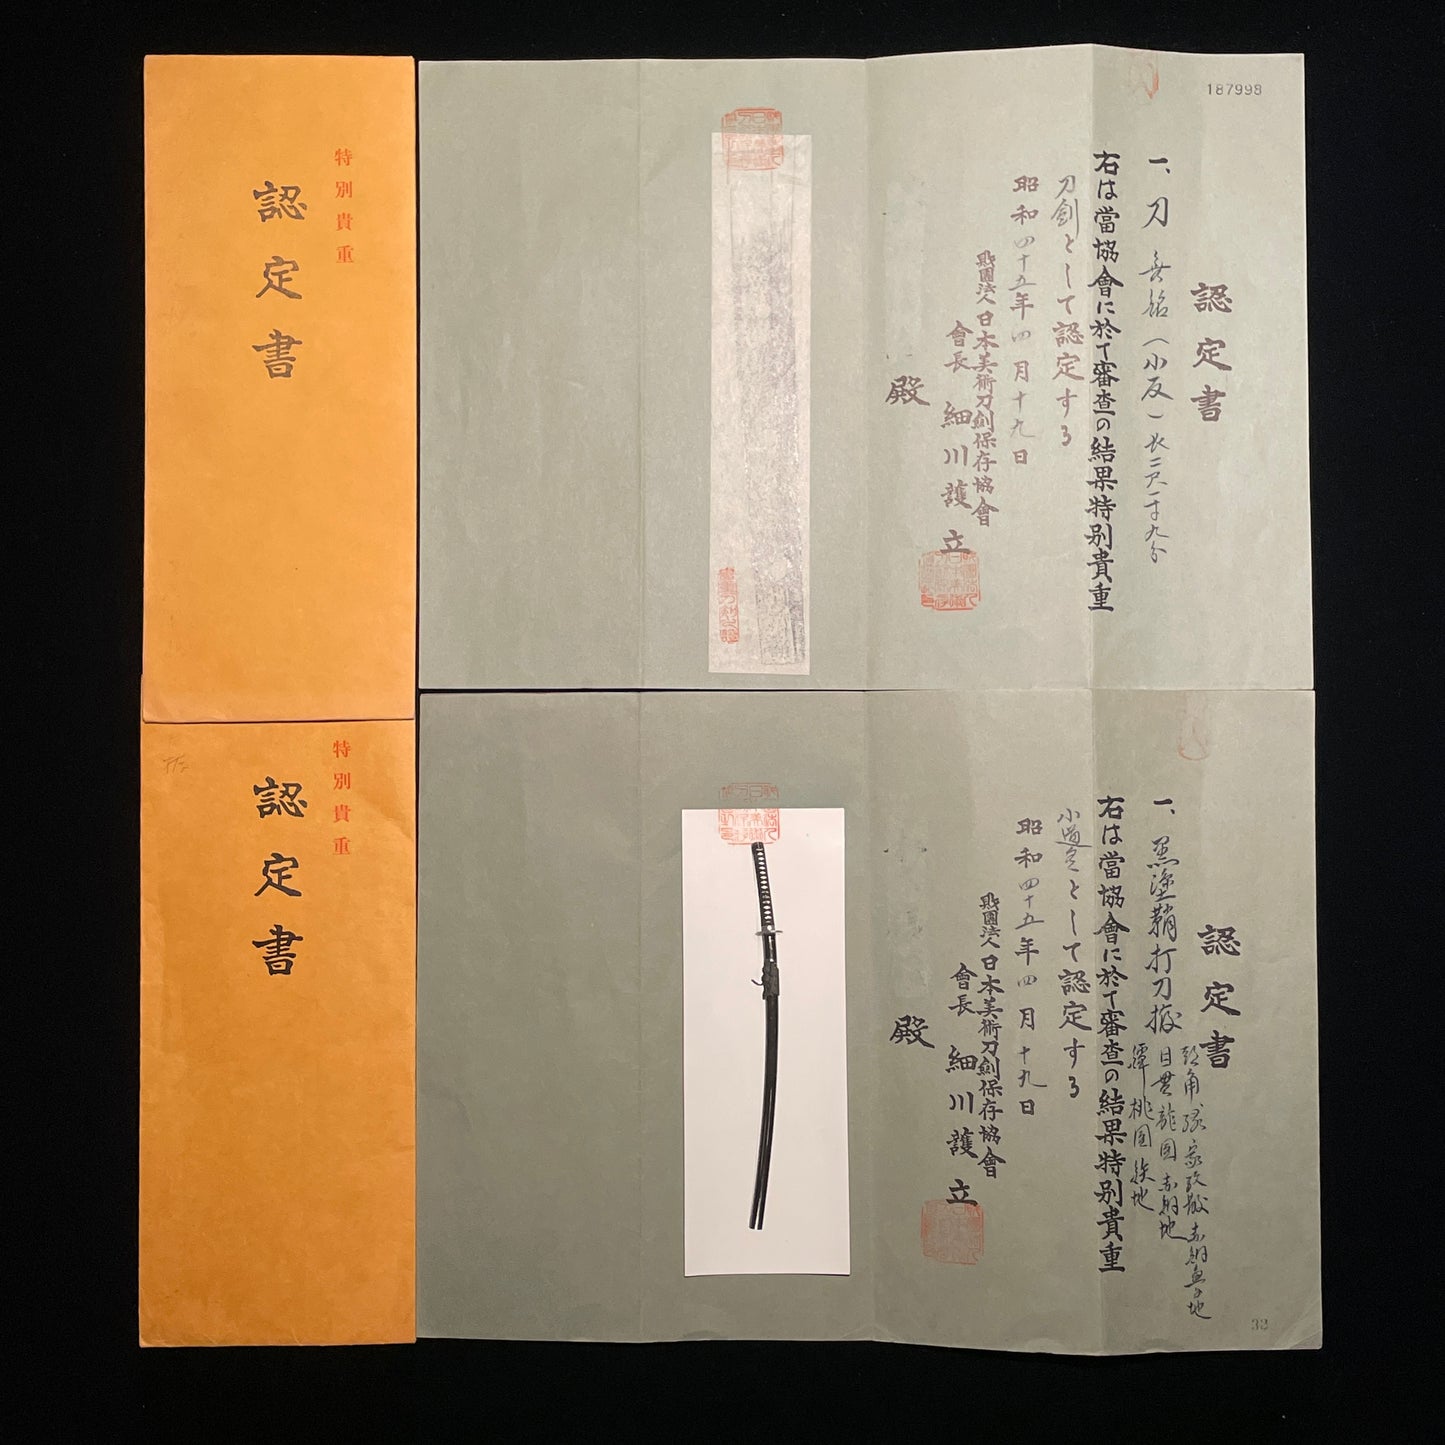 特別貴重
認定書
187998
認定書
一、刀 無銘(小反)長二尺一寸九分
右は當協會に於て審査の結果特別貴重
刀劍として認定する
昭和四十五年四月十九日
財團法人日本美術刀劍保存協會
會長 細川護立
殿
特別貴重
認定書
認定書
一、黒塗鞘打刀拵
目貫龍図赤銅地
鐔桃図鉄地
右は當協會に於て審査の結果特別貴重
小道具として認定する
昭和四十五年四月十九日
財團法人日本美術刀劍保存協會
會長 細川護立
殿
33